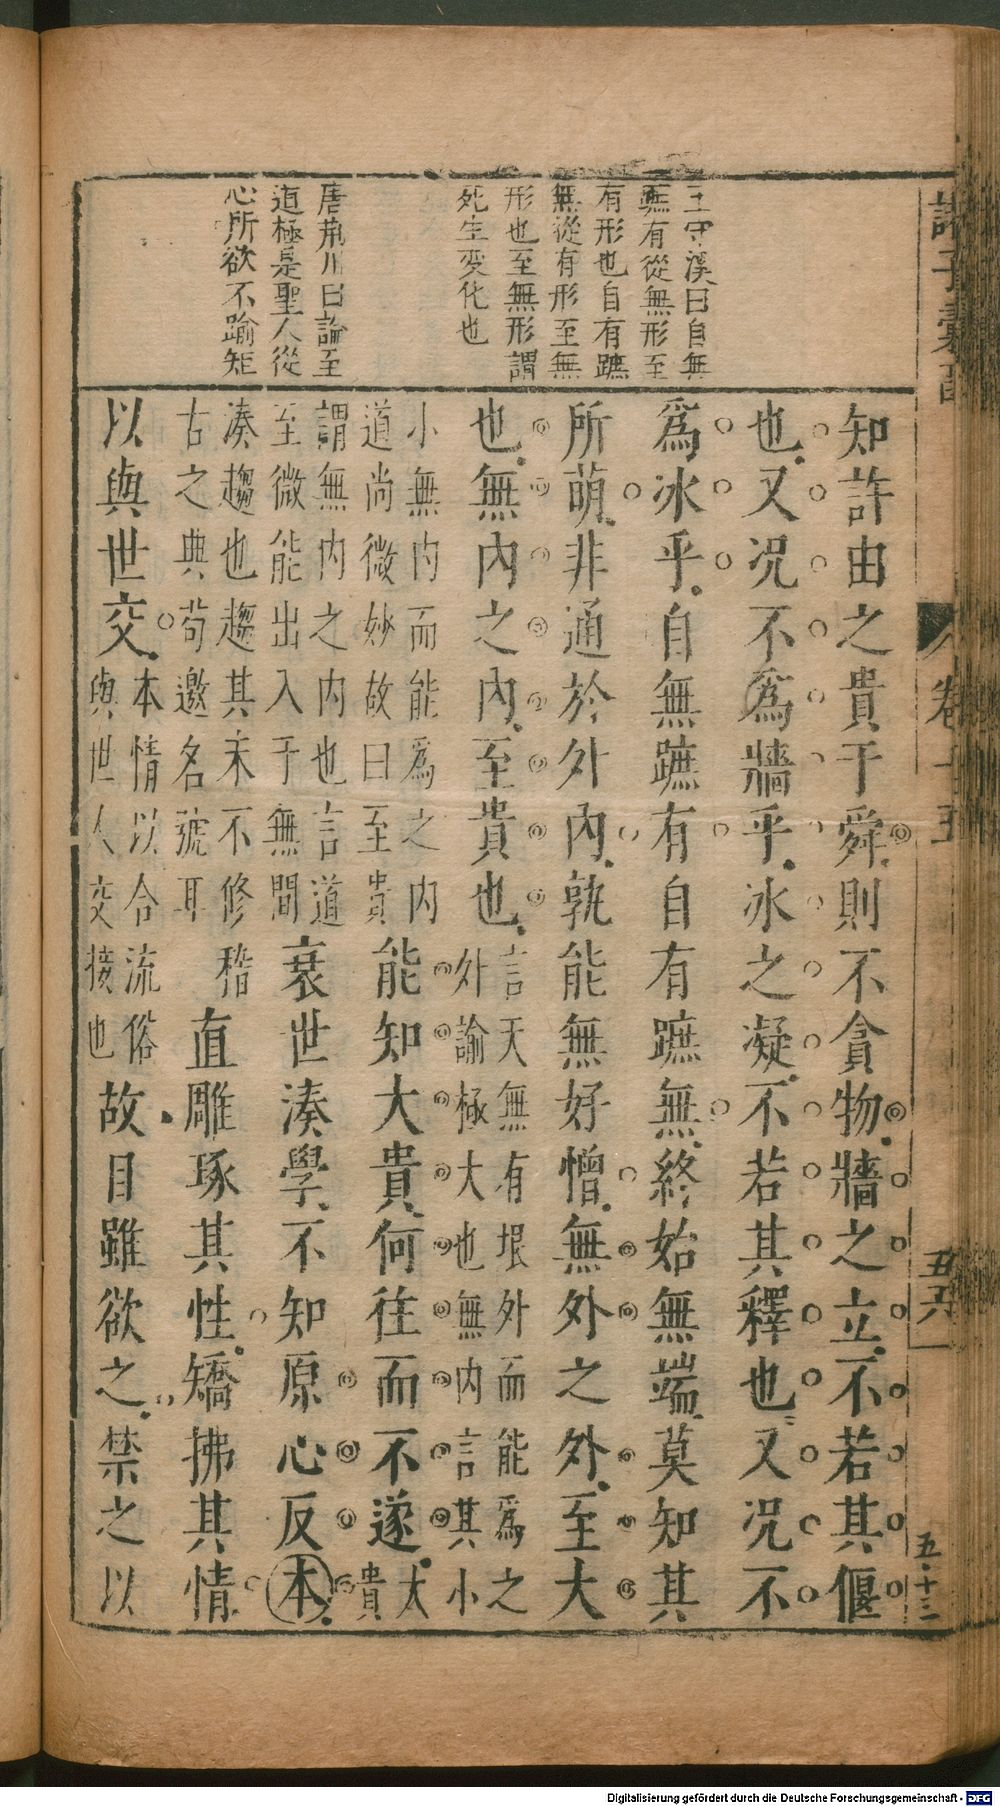 王守溪曰自無
無有從無形至
有形也自有蹠
無從有形至無
形也至無形謂
死生变化也
唐荊川曰論至
道極是聖人從
心所欲不踰矩
知許由之貴于舜則不貪物牆之立不若其偃
也又况不爲牆乎冰之凝不若其釋也又况不
爲冰乎自無蹠有自有蹠無終始無端莫知其
所萌非通於外內孰能無好憎無外之外至大
也無內之內至貴也
言天無有垠外而能爲之
外諭極大也無内言其小
小無内而能爲之内
道尚微妙故曰至貴
能知大貴何往而不遂
大
貴
謂無内之内也言道
至微能出入于無間
衰世湊學不知原心反本
湊趨也趨其末不修稽
古之典苟邀名號耳
直雕琢其性矯拂其情
以與世交
本情以合流俗
與世人交接也
故目雖欲之禁之以
卷十五
五六
五·十三
Digitalisierung gefördert durch die Deutsche Forschungsgemeinschaft - DFG